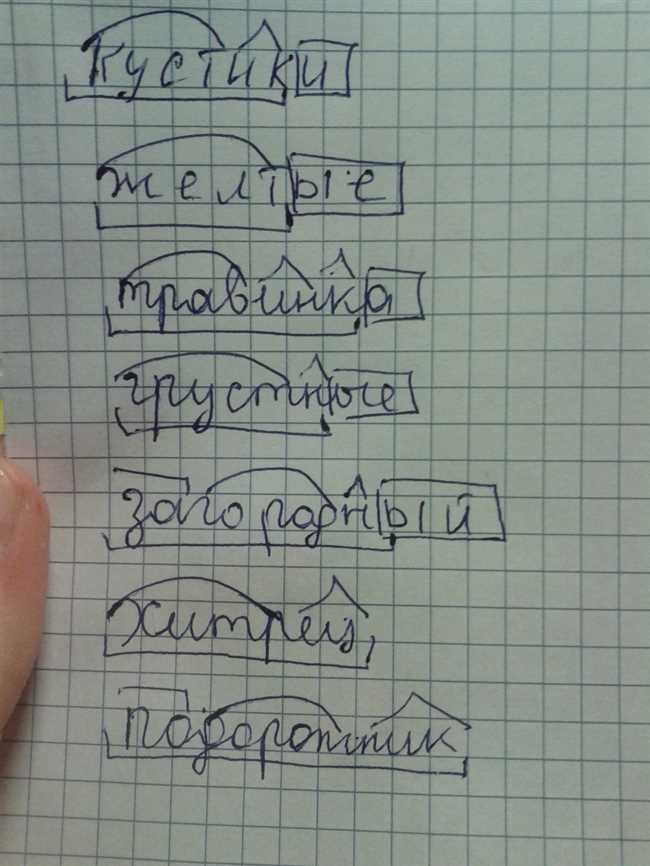 кустики
желтые
травинка
грустные
загородный
хитрец
подорожник